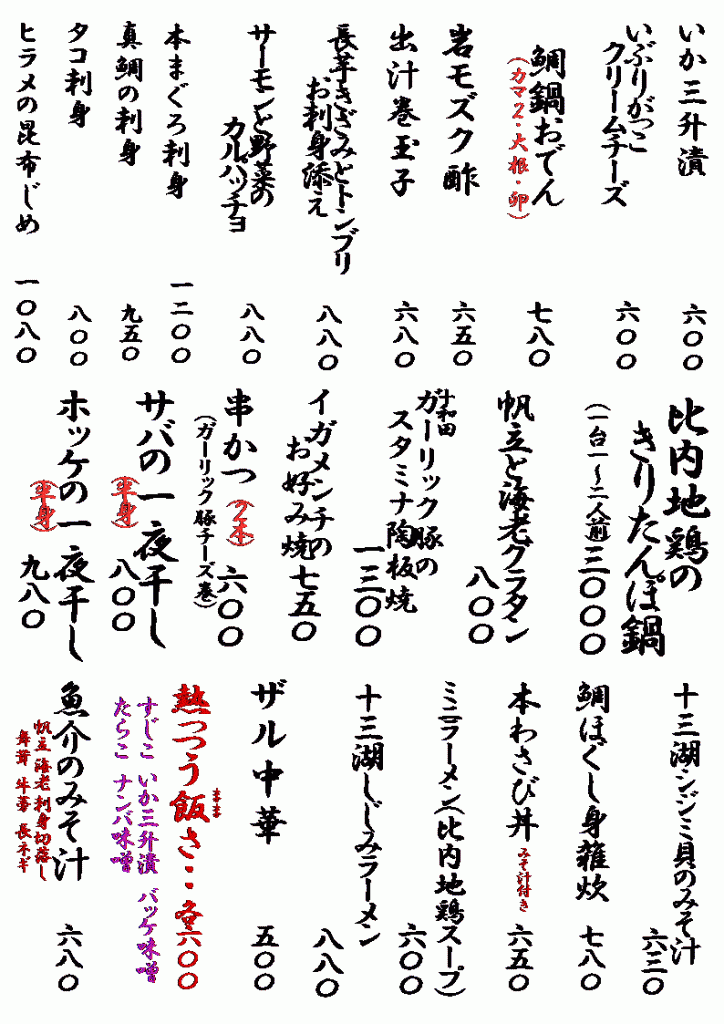 いか三升漬
六〇〇
いぶりがっこ
クリームチーズ
六〇〇
鯛鍋おでん
(カマ2・大根・卵)
七八〇
岩モズク酢
六五〇
出汁巻玉子
六八〇
長芋きざみとトンブリ
お刺身添え
八八〇
サーモンと野菜の
カルパッチョ
八八〇
本まぐろ刺身
一二〇〇
真鯛の刺身
九五〇
タコ刺身
八〇〇
ヒラメの昆布じめ
一〇八〇
比内地鶏の
きりたんぽ鍋
(一台一〜二人前)
三〇〇〇
帆立と海老グラタン
八〇〇
十和田
ガーリック豚の
スタミナ陶板焼
一三〇〇
イガメンチの
お好み焼
七五〇
串かつ(2本)
(ガーリック豚チーズ巻)
六〇〇
サバの一夜干し
(半身)
八〇〇
ホッケの一夜干し
(半身)
九八〇
十三湖シジミ貝のみそ汁
六三〇
鯛ほぐし身雑炊
七八〇
本わさび丼 みそ汁付き
六五〇
ミニラーメン(比内地鶏スープ)
六〇〇
十三湖しじみラーメン
八八〇
ザル中華
五〇〇
熱っつう飯さ・・各六〇〇
まま
すじこ いか三升漬 バッケ味噌
たらこ ナンバ味噌
魚介のみそ汁
帆立 海老 刺身切落し
舞茸 牛蒡 長ネギ
六八〇